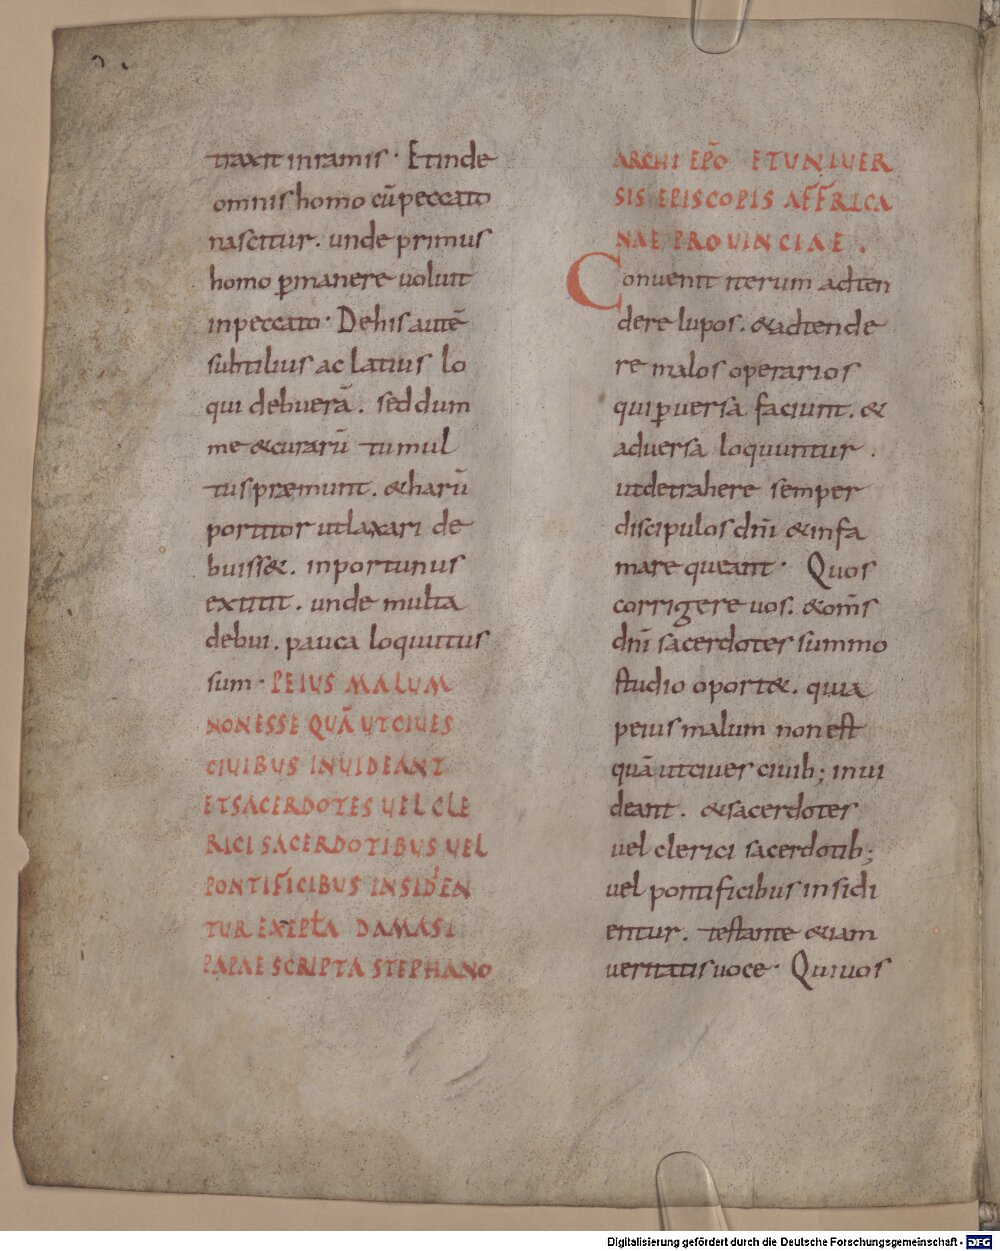 traxit inramis · Et inde
omnis homo cū peccato
nascitur. unde primus
homo ꝑmanere uoluit
inpeccato · De his autē
subtilius ac latius lo
qui debuerā. sed dum
me &curarū tumul
tus præmunt. & harū
portitor ut laxari de
buiss&. inportunus
extitit. unde multa
debui. pauca loquutus
sum · PEIUS MALUM
NON ESSE QUĀ UT CIUES
CIUIBUS INUIDEANT
ET SACERDOTES UEL CLE
RICI SACERDOTIBUS UEL
PONTIFICIBUS INSIDIEN
TUR EX EPĪA DAMASI
PAPAE SCRIPTA STEPHANO
ARCHI EP̄O ET UNIUER
SIS EPISCOPIS AFFRICA
NAE PROUINCIAE .
Conuenit iterum adten
dere lupos. & adtende
re malos operarios
qui ꝑuersa faciunt. &
aduersa loquuntur .
ut detrahere semper
discipulos dn̄i & infa
mare queant · Quos
corrigere uos. & om̄s
dn̄i sacerdotes summo
studio oport&. quia
peius malum non est
quā ut ciues ciuib; inui
deant. & sacerdotes
uel clerici sacerdotib;
uel pontificibus insidi
entur. testante &iam
ueritatis uoce · Qui uos
Digitalisierung gefördert durch die Deutsche Forschungsgemeinschaft - DFG